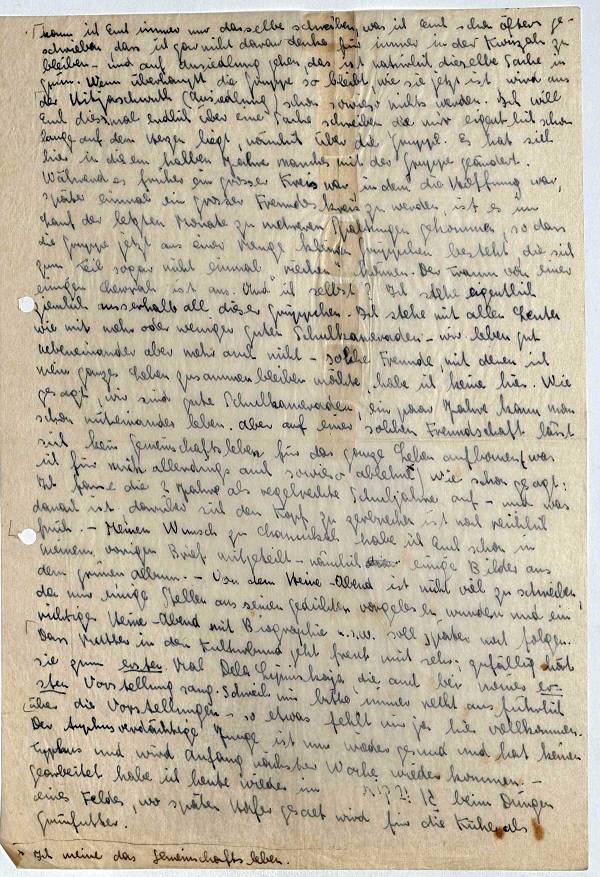 kann ich Euch immer nur dasselbe schreiben, was ich Euch schon öfters ge-
schrieben dass ich gar nicht daran denke für immer in der Kwuzah zu
bleiben – und auf Ansiedlung gehen, das ist natürlich dieselbe Sache in
grün. Wenn überhaupt die Gruppe so bleibt wie sie jetzt ist wird aus
der Hitjaschwuth (Ansiedlung) schon sowieso nichts werden. Ich will
Euch diesmal endlich über eine Sache schreiben die mir eigentlich schon
lange auf dem Herzen liegt, nämlich über die Gruppe. Es hat sich
hier in diesem halben Jahre manches mit der Gruppe geändert.
Während es früher ein grosser Kreis war, in dem die Hoffnung war,
später einmal ein grosser Freundeskreis zu werden ist es im
Lauf der letzten Monate zu mehreren Spaltungen gekommen, so dass
die Gruppe jetzt aus einer Menge kleinen Grüppchen besteht, die sich
zum Teil sogar nicht einmal riechen können. Der Traum von einer
einigen Chewrah ist aus. Und ich selbst? Ich stehe eigentlich
ziemlich ausserhalb all dieser Grüppchen. Ich stehe mit allen Leuten
wie mit mehr oder weniger guten Schulkameraden – wir leben gut
nebeneinander aber mehr auch nicht – solche Freunde, mit denen ich
mein ganzes Leben zusammen bleiben möchte, habe ich keine hier. Wie
gesagt, wir sind gute Schulkameraden, ein paar Jahre kann man
schon miteinander leben. Aber auf einer solchen Freundschaft lässt
sich kein Gemeinschaftsleben für das ganze Leben aufbauen (was
ich für mich allerdings auch sowieso ablehne) wie schon gesagt:
Ich fasse die 2 Jahre als regelrechte Schuljahre auf – und was
danach ist darüber sich den Kopf zu zerbrechen ist noch reichlich
früh. – Meinen Wunsch zu Chanukkah habe ich Euch schon in
meinem vorigen Brief mitgeteilt – nämlich einige Bilder aus
dem grünen Album. – Von dem Heine-Abend ist nicht viel zu schreiben
da nur einige Stellen aus seinen Gedichten vorgelesen wurden und ein
richtiger Heine-Abend mit Biographie u.s.w. soll später noch folgen.
Dass Mutter in den Kulturbund geht freut mich sehr; zufällig hört
sie zum ersten Mal Dela Lipinskaja, die auch bei meiner er-
sten Vorstellung sang. Schreib mir bitte immer recht ausführlich
über die Vorstellungen – so etwas fehlt uns ja hier vollkommen.
Der typhusverdächtige Junge ist nun wieder gesund und hat keinen
Typhus und wird Anfang nächster Woche wieder kommen. –
Gearbeitet habe ich heute wieder im beim Düngen
eines Feldes, wo später Hafer gesäet wird für die Kühe als
Grünfutter.
Ich meine das Gemeinschaftsleben.